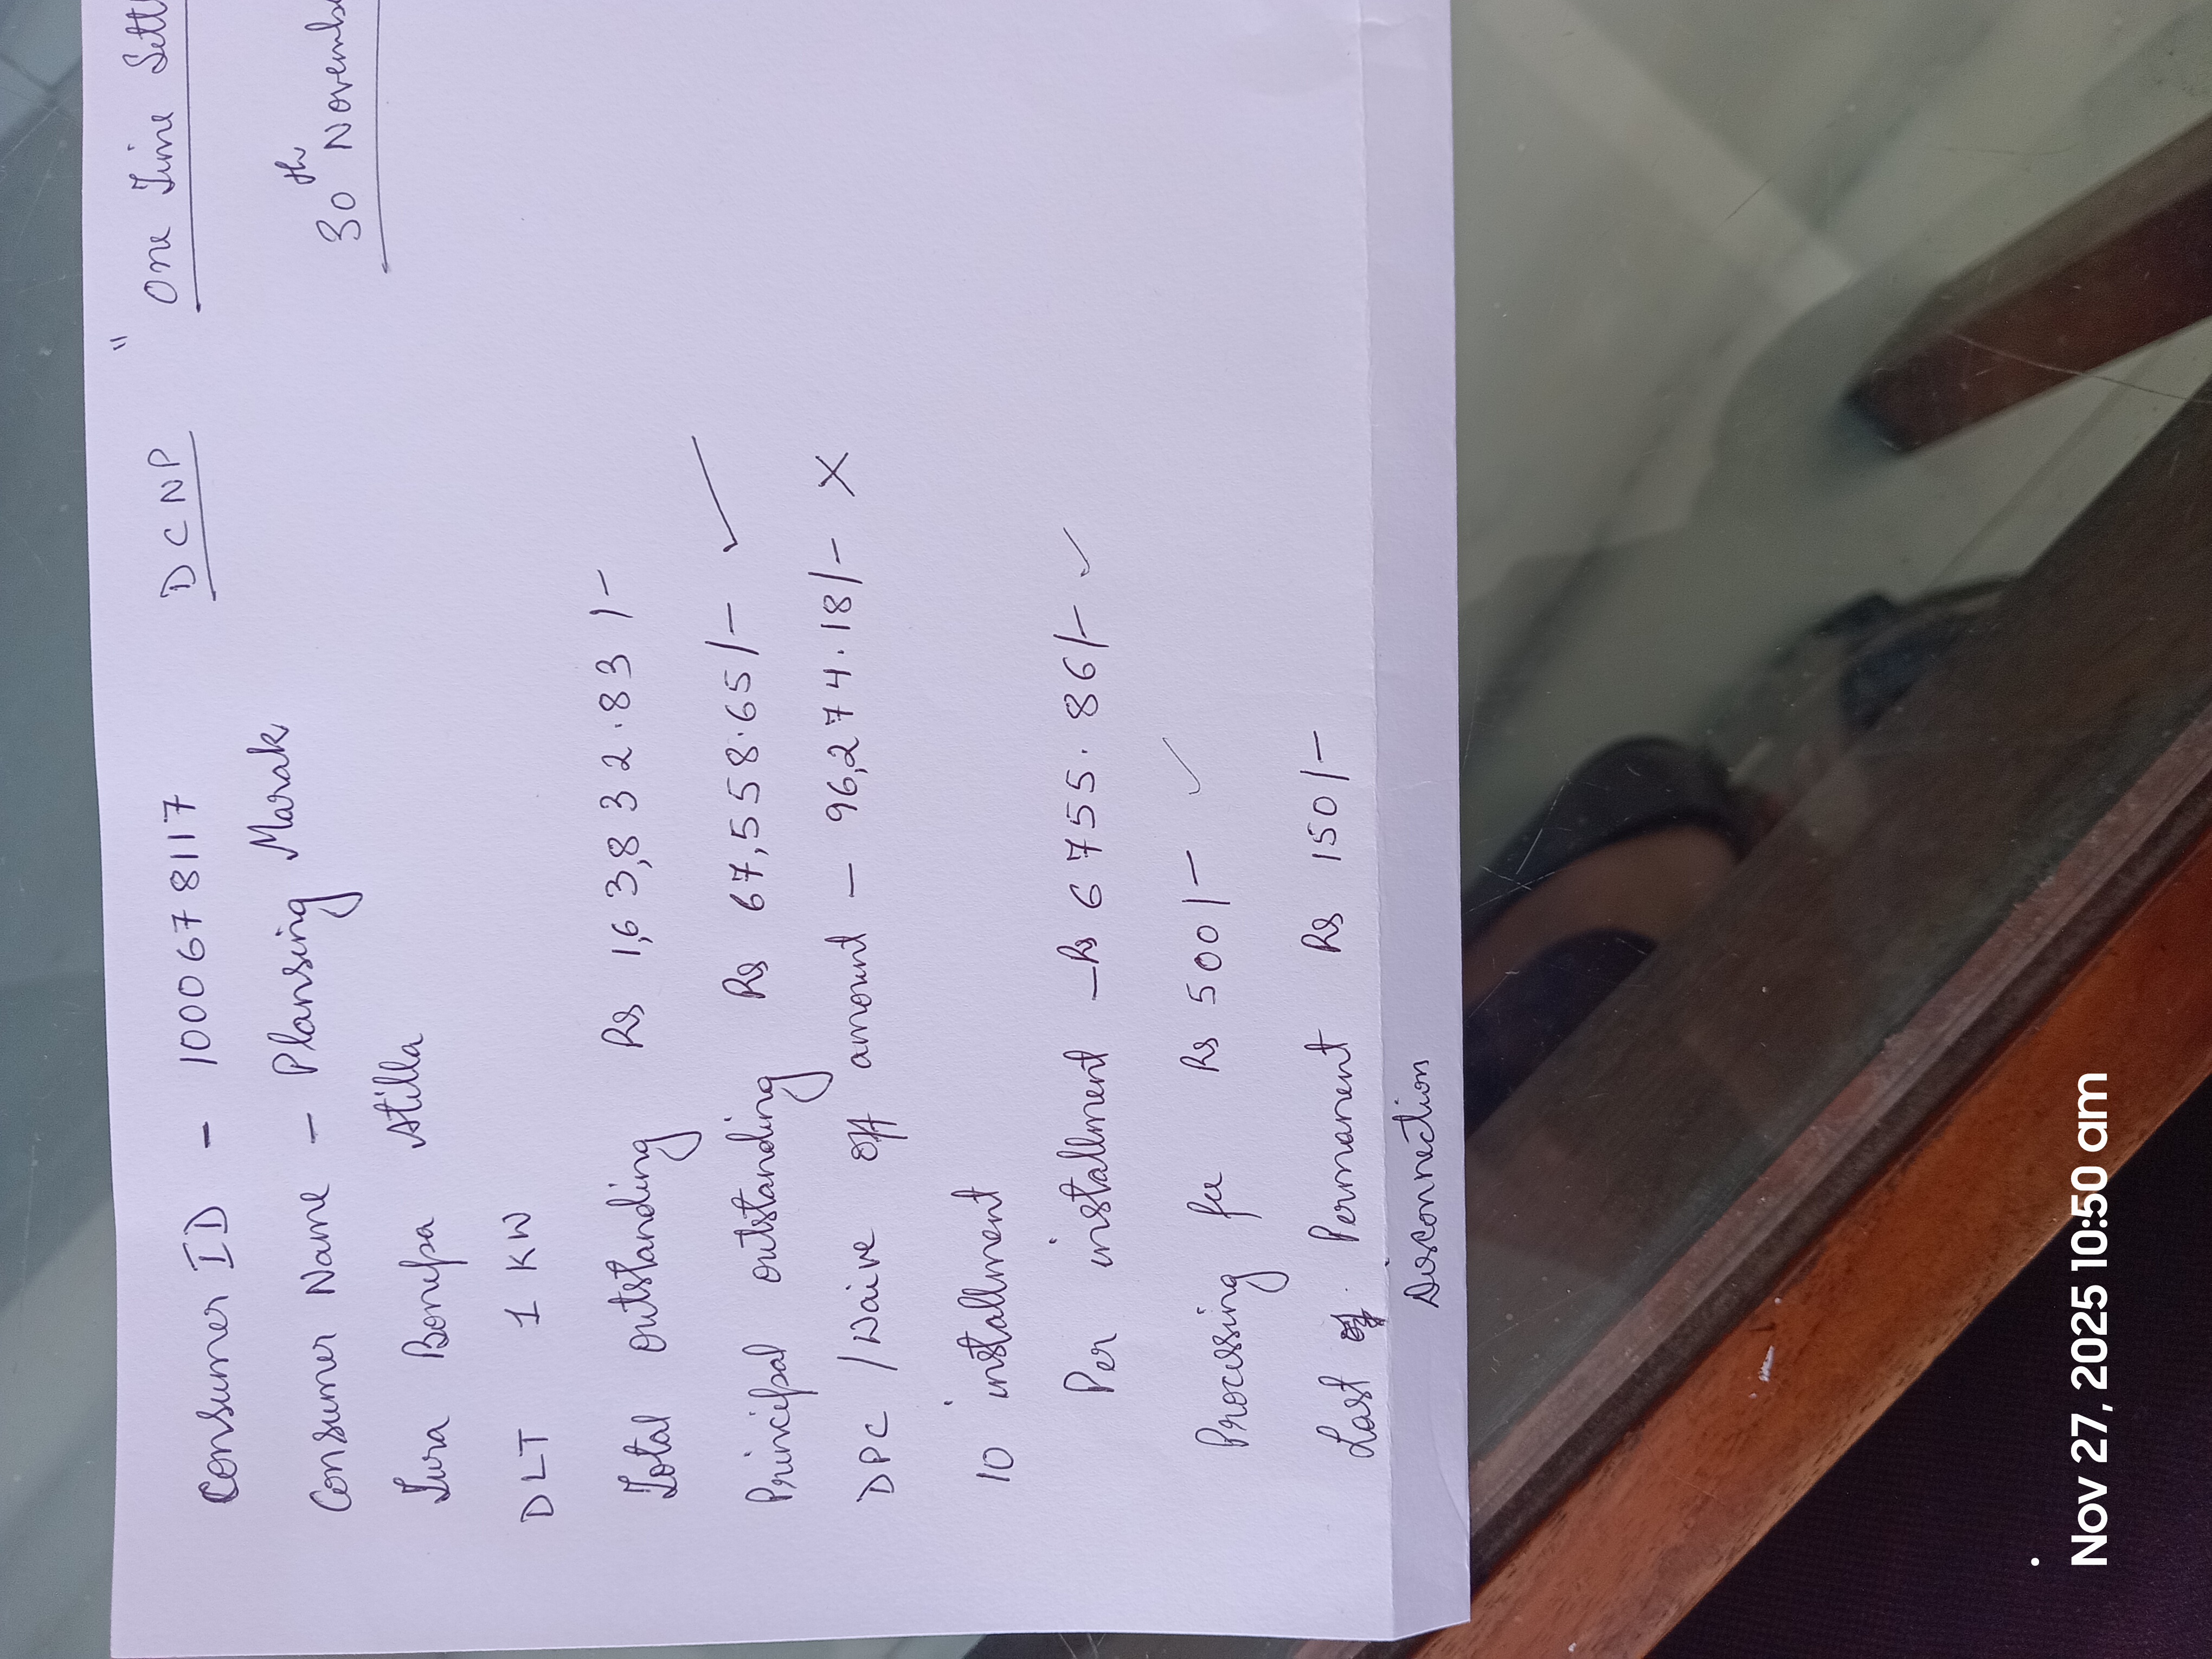 Consumer ID - 100678117 DCNP " One Time Settl
Consumer Name - Plansing Marak 30th November
Tura Bonepa Atilla
DLT 1 KW
Total outstanding Rs 1,63,832.83/-
Principal outstanding Rs 67,558.65/- ✓
DPC/Waive off amount - 96,274.18/- X
10 installment
Per installment - Rs 6755.86/- ✓
Processing fee Rs 500/- ✓
Last of Permanent Rs 150/-
Disconnection
Nov 27, 2025 10:50 am